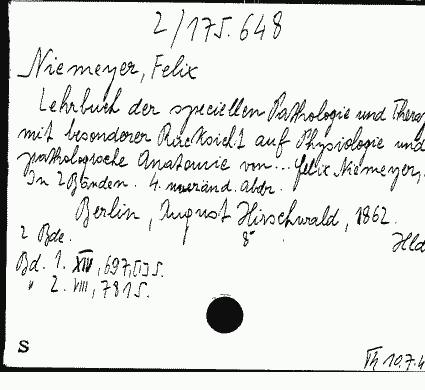 2/175.648
Niemeyer, Felix
Lehrbuch der speciellen Pathologie und Therap
mit besonderer Rücksicht auf Physiologie und
pathologische Anatomie von... Felix Niemeyer,
In 2 Bänden. 4. unveränd. Abdr.
Berlin, August Hirschwald, 1862.
2 Bde. 8° Hld
Bd. 1. XIV, 697,[1] S.
" 2. VIII, 781 S.
S
Th 10.7.4